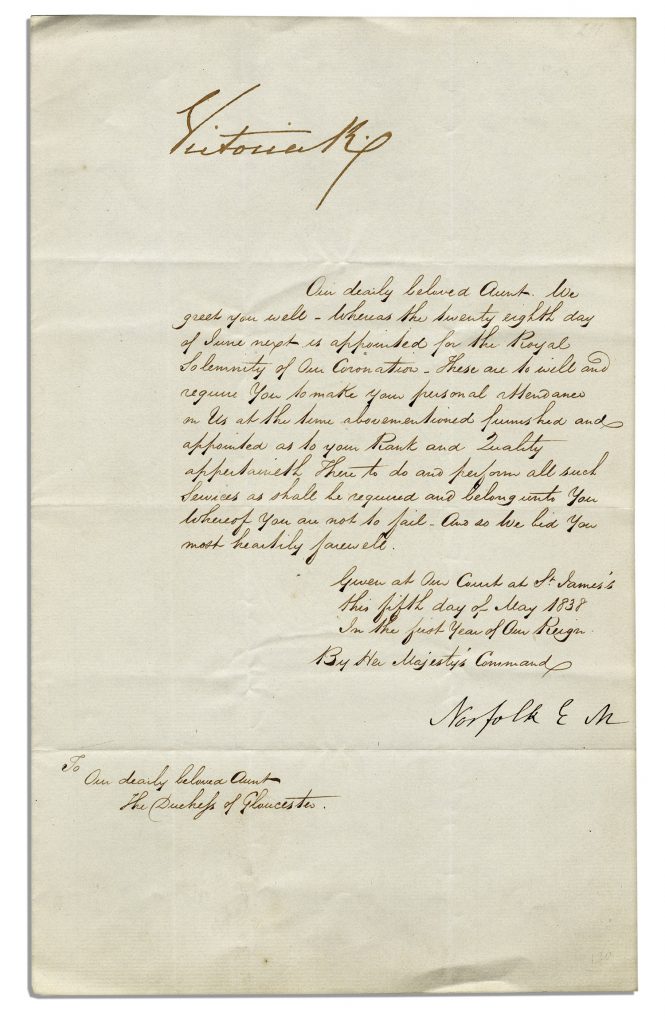 Victoria R.
Our dearly beloved Aunt. We
greet you well – Whereas the twenty eighth day
of June next is appointed for the Royal
Solemnity of Our Coronation – These are to will and
require You to make your personal attendance
on Us at the time abovementioned furnished and
appointed as to your Rank and Quality
appertaineth There to do and perform all such
Services as shall be required and belong unto You
Whereof You are not to fail – And so We bid You
most heartily farewell.
Given at Our Court at St. James's
this fifth day of May 1838
In the first Year of Our Reign.
By Her Majesty's Command
Norfolk E M
To
Our dearly beloved Aunt
The Duchess of Gloucester.